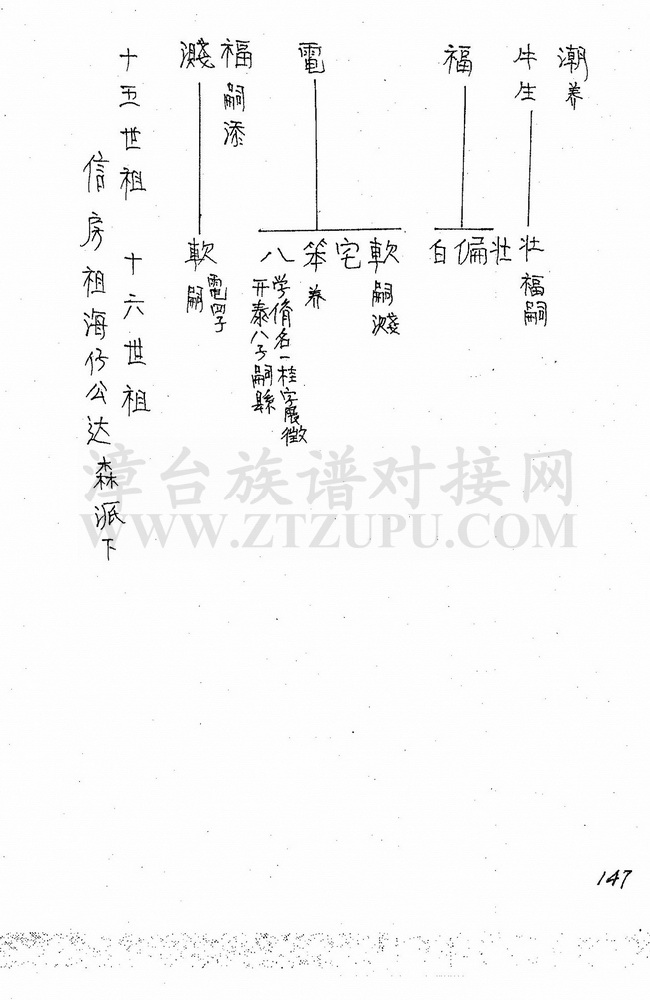 潮养
牛生
壮福嗣
福
壮
偏
白
電
軟嗣濺
宅
笨养
八学脩名一桂字展徵
开泰八子嗣縣
福嗣添
濺
軟電四子
嗣
十五世祖 十六世祖
信房祖海仔公达森派下
漳台族谱对接网
WWW.ZTZUPU.COM
147